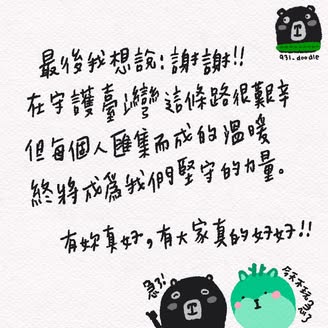 931_doodle
最後我想說：謝謝!!
在守護臺灣這條路很艱辛
但每個人匯集而成的溫暖
終將成為我們堅守的力量。
有妳真好，有大家真的好好!!
急了!
今天不站